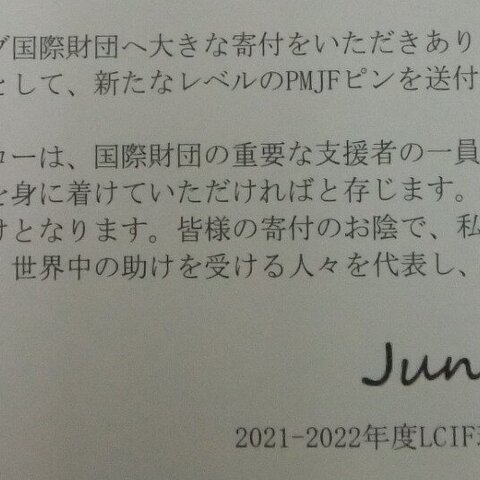 グ国際財団へ大きな寄付をいただきあり
として、新たなレベルのPMJFピンを送付
ローは、国際財団の重要な支援者の一員
を身に着けていただければと存じます。
けとなります。皆様の寄付のお陰で、私
世界中の助けを受ける人々を代表し、
Jun
2021-2022年度LCIF